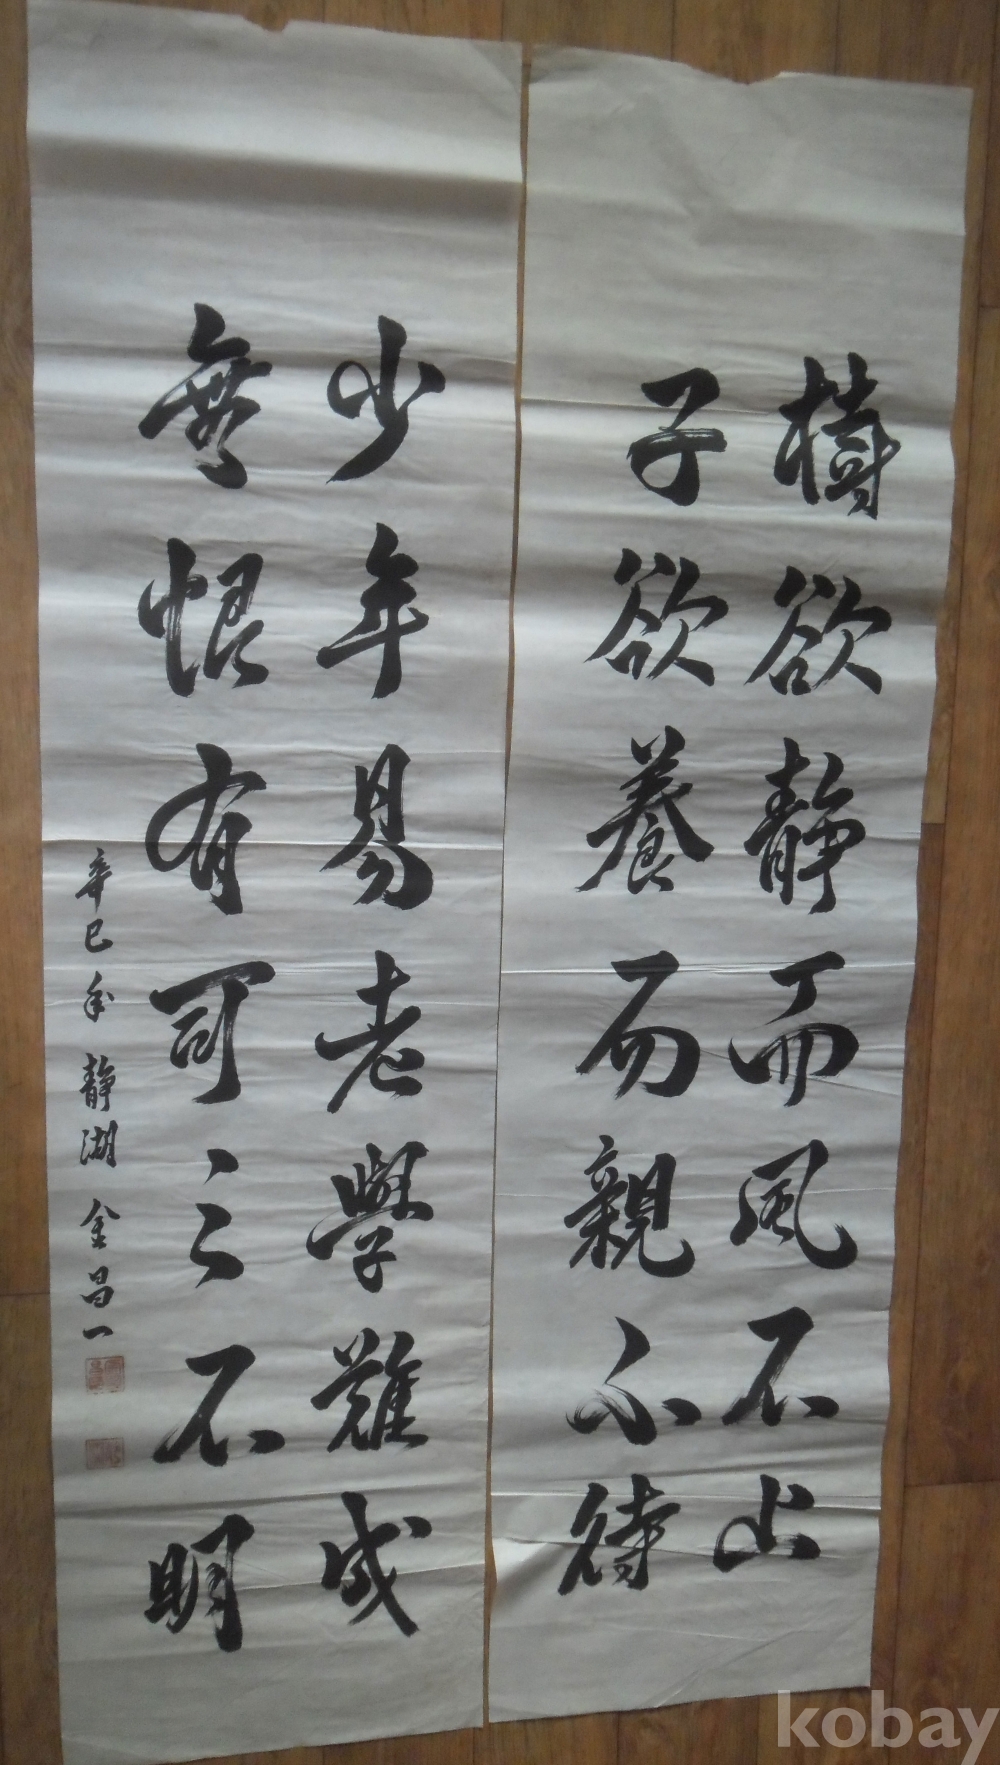 樹欲靜而風不止
子欲養而親不待
少年易老學難成
無恨有司之不明
辛巳冬 靜湖 金昌一
kobay